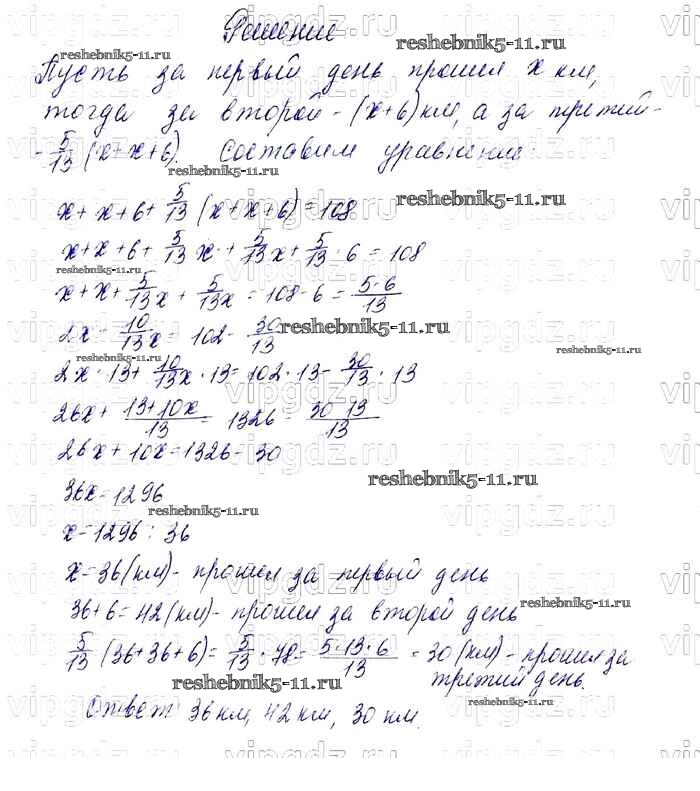 Решение
Пусть за первый день прошел x км,
тогда за второй - (x+6) км, а за третий -
- 5/13 (x+x+6). Составим уравнение:
x + x + 6 + 5/13 (x+x+6) = 108
x + x + 6 + 5/13 x + 5/13 x + 5/13 · 6 = 108
x + x + 5/13 x + 5/13 x = 108 - 6 = 5·6/13
2x - 10/13 x = 102 - 30/13
2x · 13 + 10/13 x · 13 = 102 · 13 - 30/13 · 13
26x + 13+10x/13 = 1326 - 30 13/13
26x + 10x = 1326 - 30
36x = 1296
x = 1296 : 36
x = 36 (км) - прошел за первый день
36+6 = 42 (км) - прошел за второй день
5/13 (36+36+6) = 5/13 · 78 = 5·13·6/13 = 30 (км) - прошел за
третий день.
Ответ: 36 км, 42 км, 30 км.
reshebnik5-11.ru
reshebnik5-11.ru
reshebnik5-11.ru
reshebnik5-11.ru
reshebnik5-11.ru
reshebnik5-11.ru
reshebnik5-11.ru
reshebnik5-11.ru
reshebnik5-11.ru
reshebnik5-11.ru
reshebnik5-11.ru
reshebnik5-11.ru
reshebnik5-11.ru
vipgdz.ru